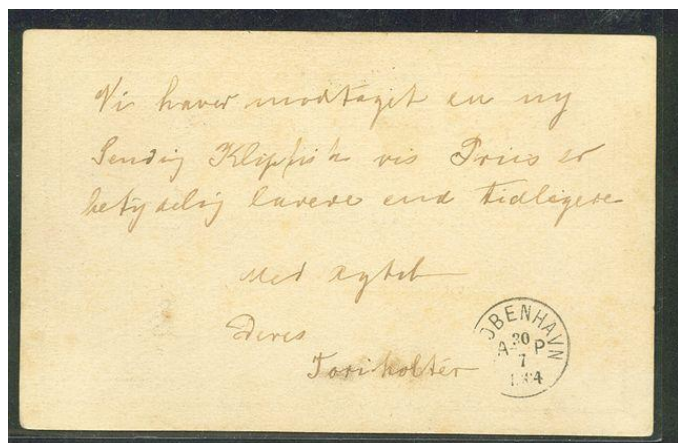 Vi haver modtaget en ny
Sendig Klipfisk vis Priis er
betydelig lavere end tidligere
Med Agtelse
Deres
KØBENHAVN
30
A P
7